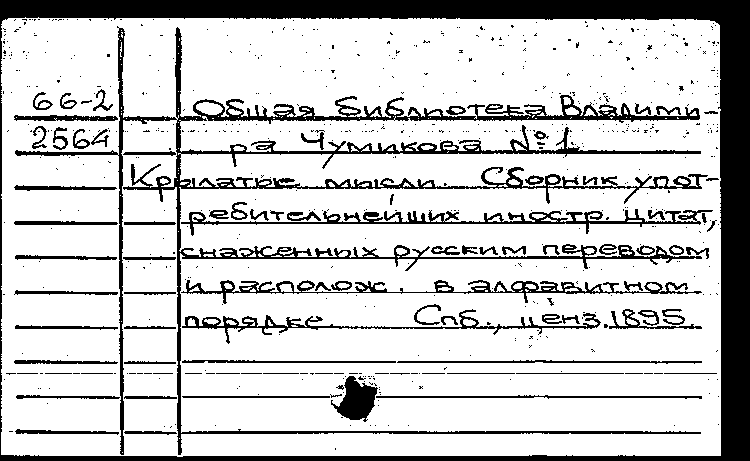 66-2 Общая библиотека Владими-
2564 ра Чумикова №1.
Крылатые мысли. Сборник упот-
ребительнейших иностр. цитат,
снаженных русским переводом
и располож. в алфавитном
порядке. Спб., ценз.1895.